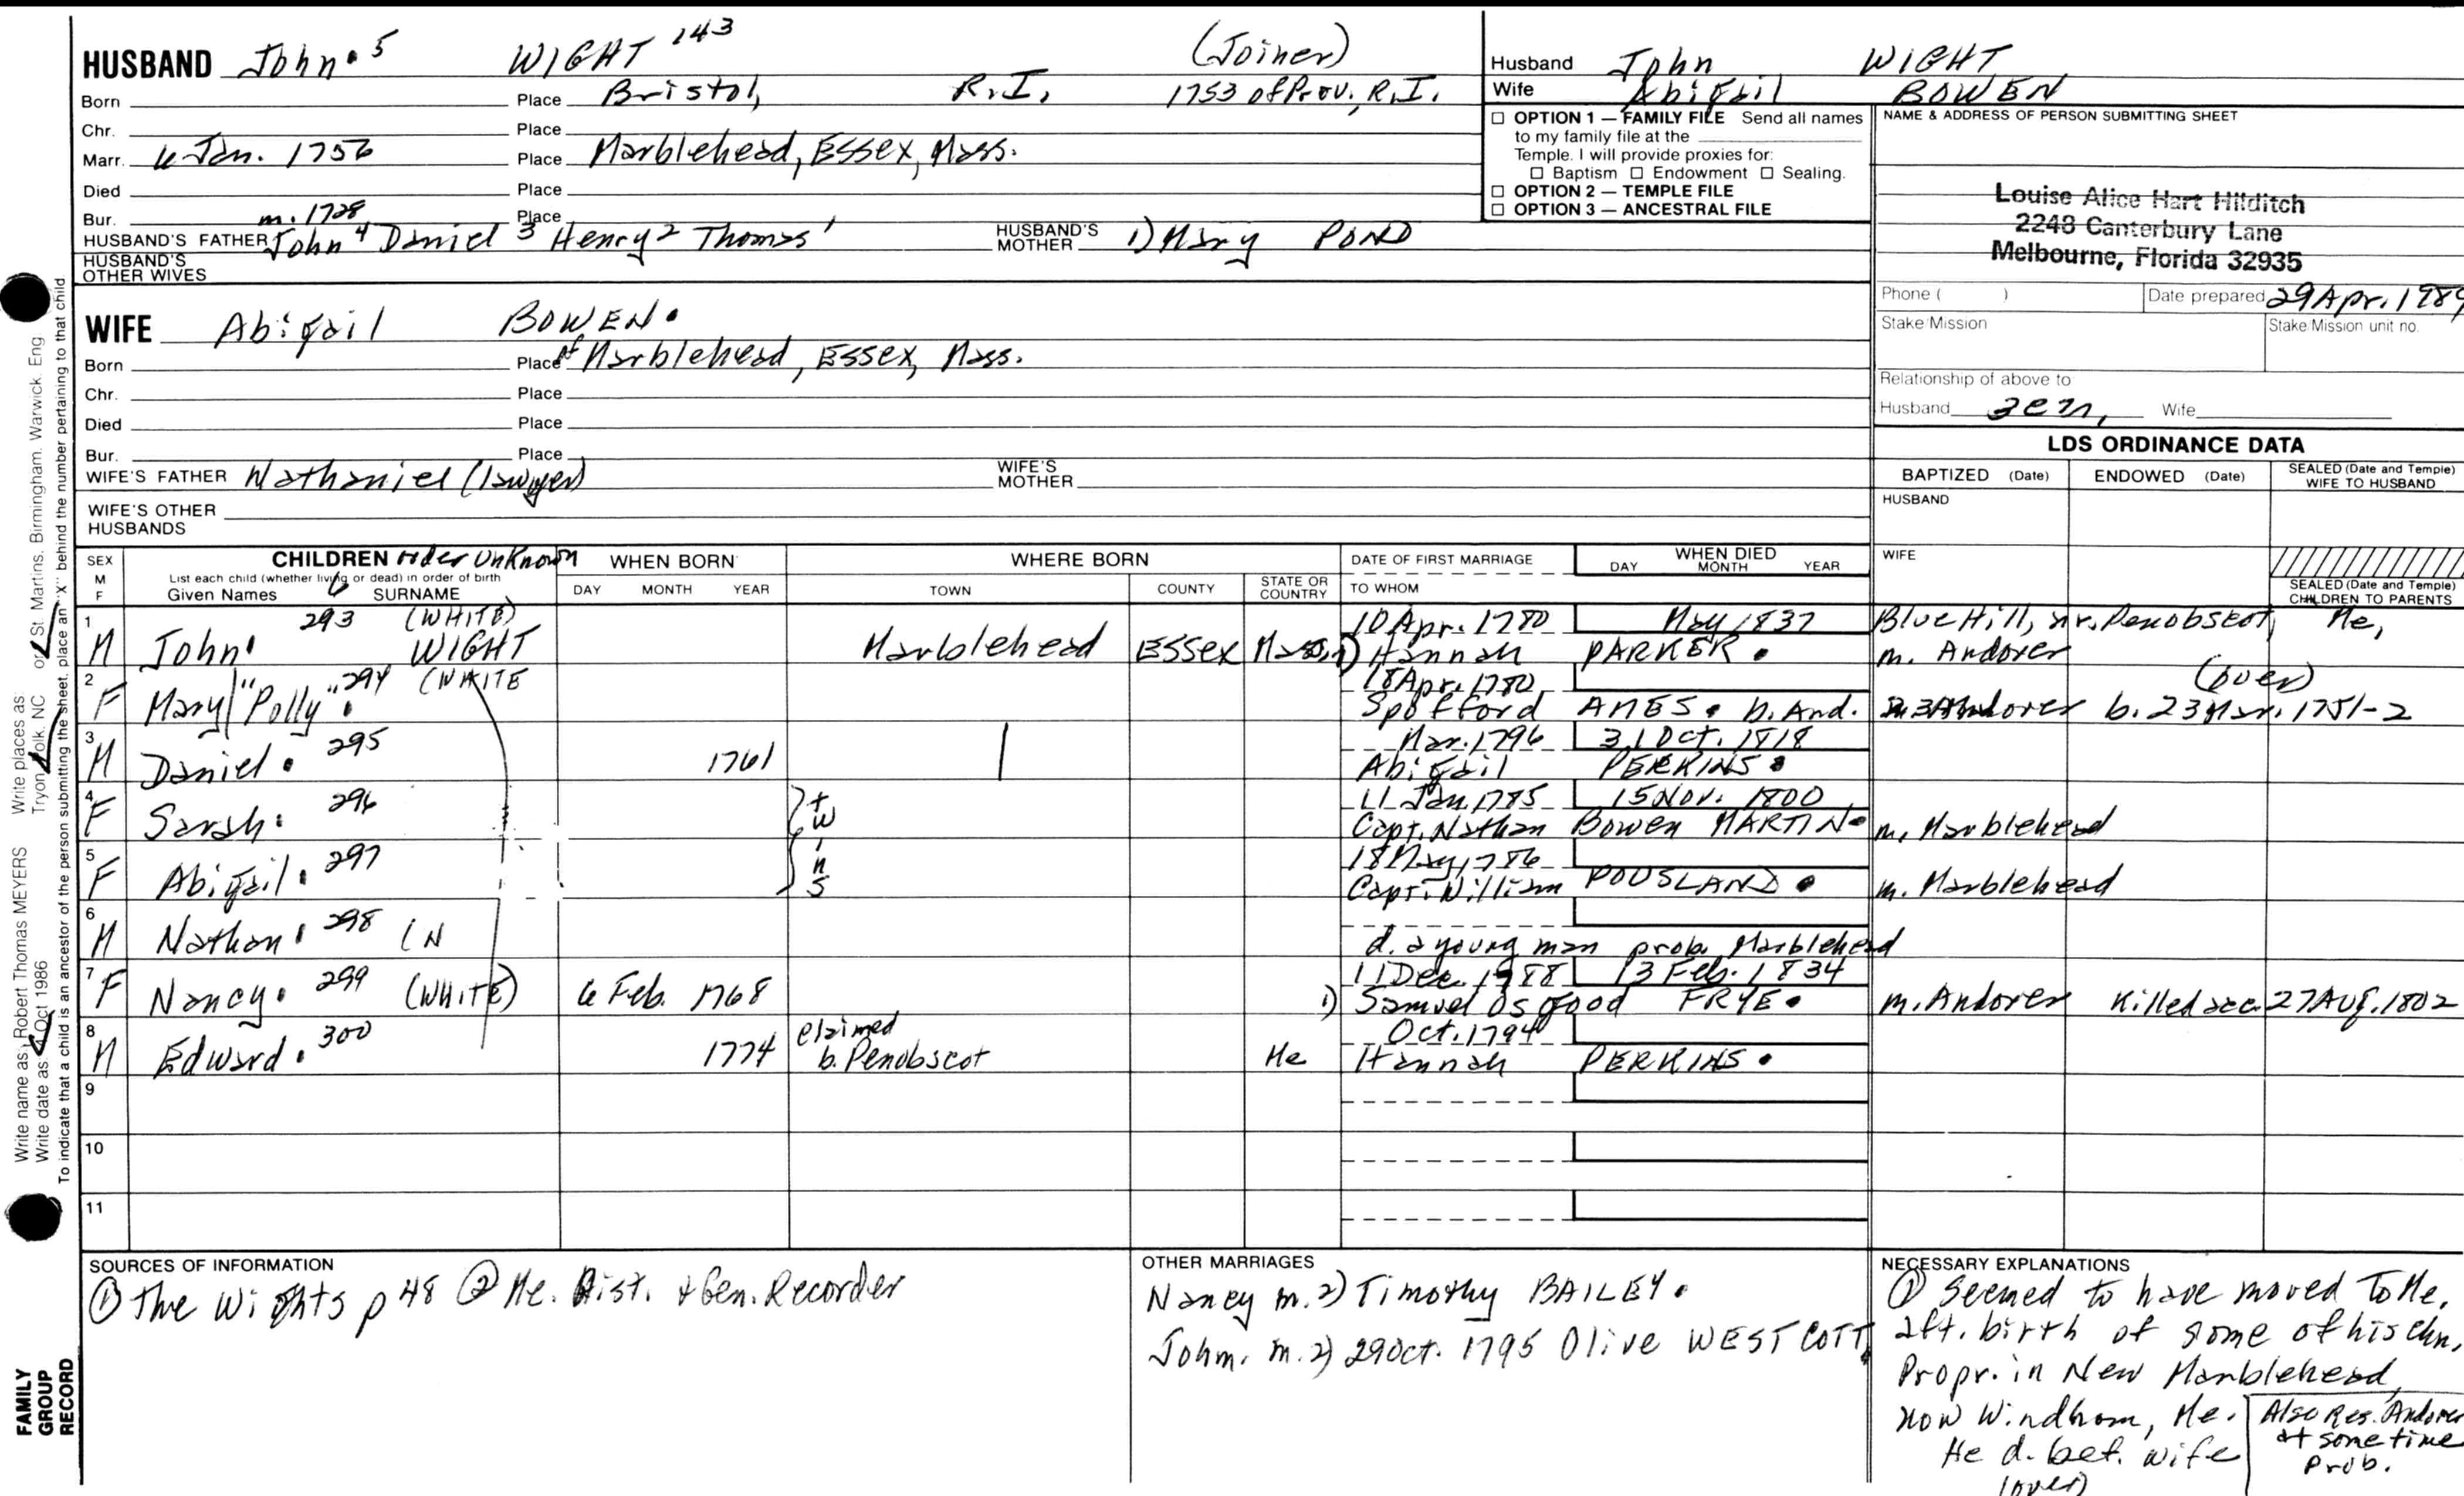 HUSBAND John. 5 WIGHT 143 (Joiner)
Born Place Bristol, R.I. 1753 of Prov., R.I.
Chr. Place
Marr. 6 Jan. 1756 Place Marblehead, Essex, Mass.
Died Place
Bur. Place
m. 1728
HUSBAND'S FATHER John 4 Daniel 3 Henry 2 Thomas 1 HUSBAND'S MOTHER 1) Mary POND
HUSBAND'S OTHER WIVES
Husband John WIGHT
Wife Abigail BOWEN
☐ OPTION 1 — FAMILY FILE Send all names
to my family file at the
Temple. I will provide proxies for:
☐ Baptism ☐ Endowment ☐ Sealing.
☐ OPTION 2 — TEMPLE FILE
☐ OPTION 3 — ANCESTRAL FILE
NAME & ADDRESS OF PERSON SUBMITTING SHEET
Louise Alice Hart Hilditch
2248 Canterbury Lane
Melbourne, Florida 32935
Phone ( ) Date prepared 29 Apr. 1989
Stake/Mission Stake/Mission unit no.
Relationship of above to
Husband Wife
WIFE Abigail BOWEN.
Born Place of Marblehead, Essex, Mass.
Chr. Place
Died Place
Bur. Place
WIFE'S FATHER Nathaniel (lawyer) WIFE'S MOTHER
WIFE'S OTHER HUSBANDS
LDS ORDINANCE DATA
BAPTIZED (Date) ENDOWED (Date) SEALED (Date and Temple) WIFE TO HUSBAND
HUSBAND
WIFE
SEALED (Date and Temple) CHILDREN TO PARENTS
SEX M F CHILDREN order unknown WHEN BORN WHERE BORN DATE OF FIRST MARRIAGE WHEN DIED
List each child (whether living or dead) in order of birth
Given Names SURNAME DAY MONTH YEAR TOWN COUNTY STATE OR COUNTRY TO WHOM DAY MONTH YEAR
1 293 (WHITE) 10 Apr. 1780 May 1837 Blue Hill, nr. Penobscot, Me,
M John. WIGHT Marblehead Essex Mass. 1) Hannah PARKER. m. Andover
2 294 (WHITE 18 Apr. 1780 (over)
F Mary/"Polly". Spofford AMES. b. And. Andover b. 23 Mar. 1751-2
3 295 Mar. 1796 31 Oct. 1818
M Daniel. 1761 Abigail PERKINS.
4 296 11 Jan. 1785 15 Nov. 1800
F Sarah. twins Capt. Nathan Bowen MARTIN. m. Marblehead
5 297 18 May 1786
F Abigail. Capt. William POUSLAND. m. Marblehead
6 298
M Nathan. (N d. a young man prob. Marblehead
7 299 11 Dec. 1788 13 Feb. 1834
F Nancy. (WHITE) 6 Feb. 1768 1) Samuel Osgood FRYE. m. Andover Killed acc. 27 Aug. 1802
8 300 claimed Oct. 1794
M Edward. 1774 b. Penobscot Me Hannah PERKINS.
9
10
11
SOURCES OF INFORMATION
① The Wights p 48 ② Me. Hist. & Gen. Recorder
OTHER MARRIAGES
Nancy m. 2) Timothy BAILEY.
John. m. 2) 29 Oct. 1795 Olive WESTCOTT.
NECESSARY EXPLANATIONS
① Seemed to have moved to Me,
aft. birth of some of his chn,
Propr. in New Marblehead,
now Windham, Me.
He d. bef. wife
(over)
Also Res. Andover
at some time
prob.
Write name as: Robert Thomas MEYERS Write places as:
Write date as: 4 Oct 1986 Tryon, Polk, NC or St. Martins, Birmingham, Warwick, Eng
To indicate that a child is an ancestor of the person submitting the sheet, place an "X" behind the number pertaining to that child
FAMILY
GROUP
RECORD